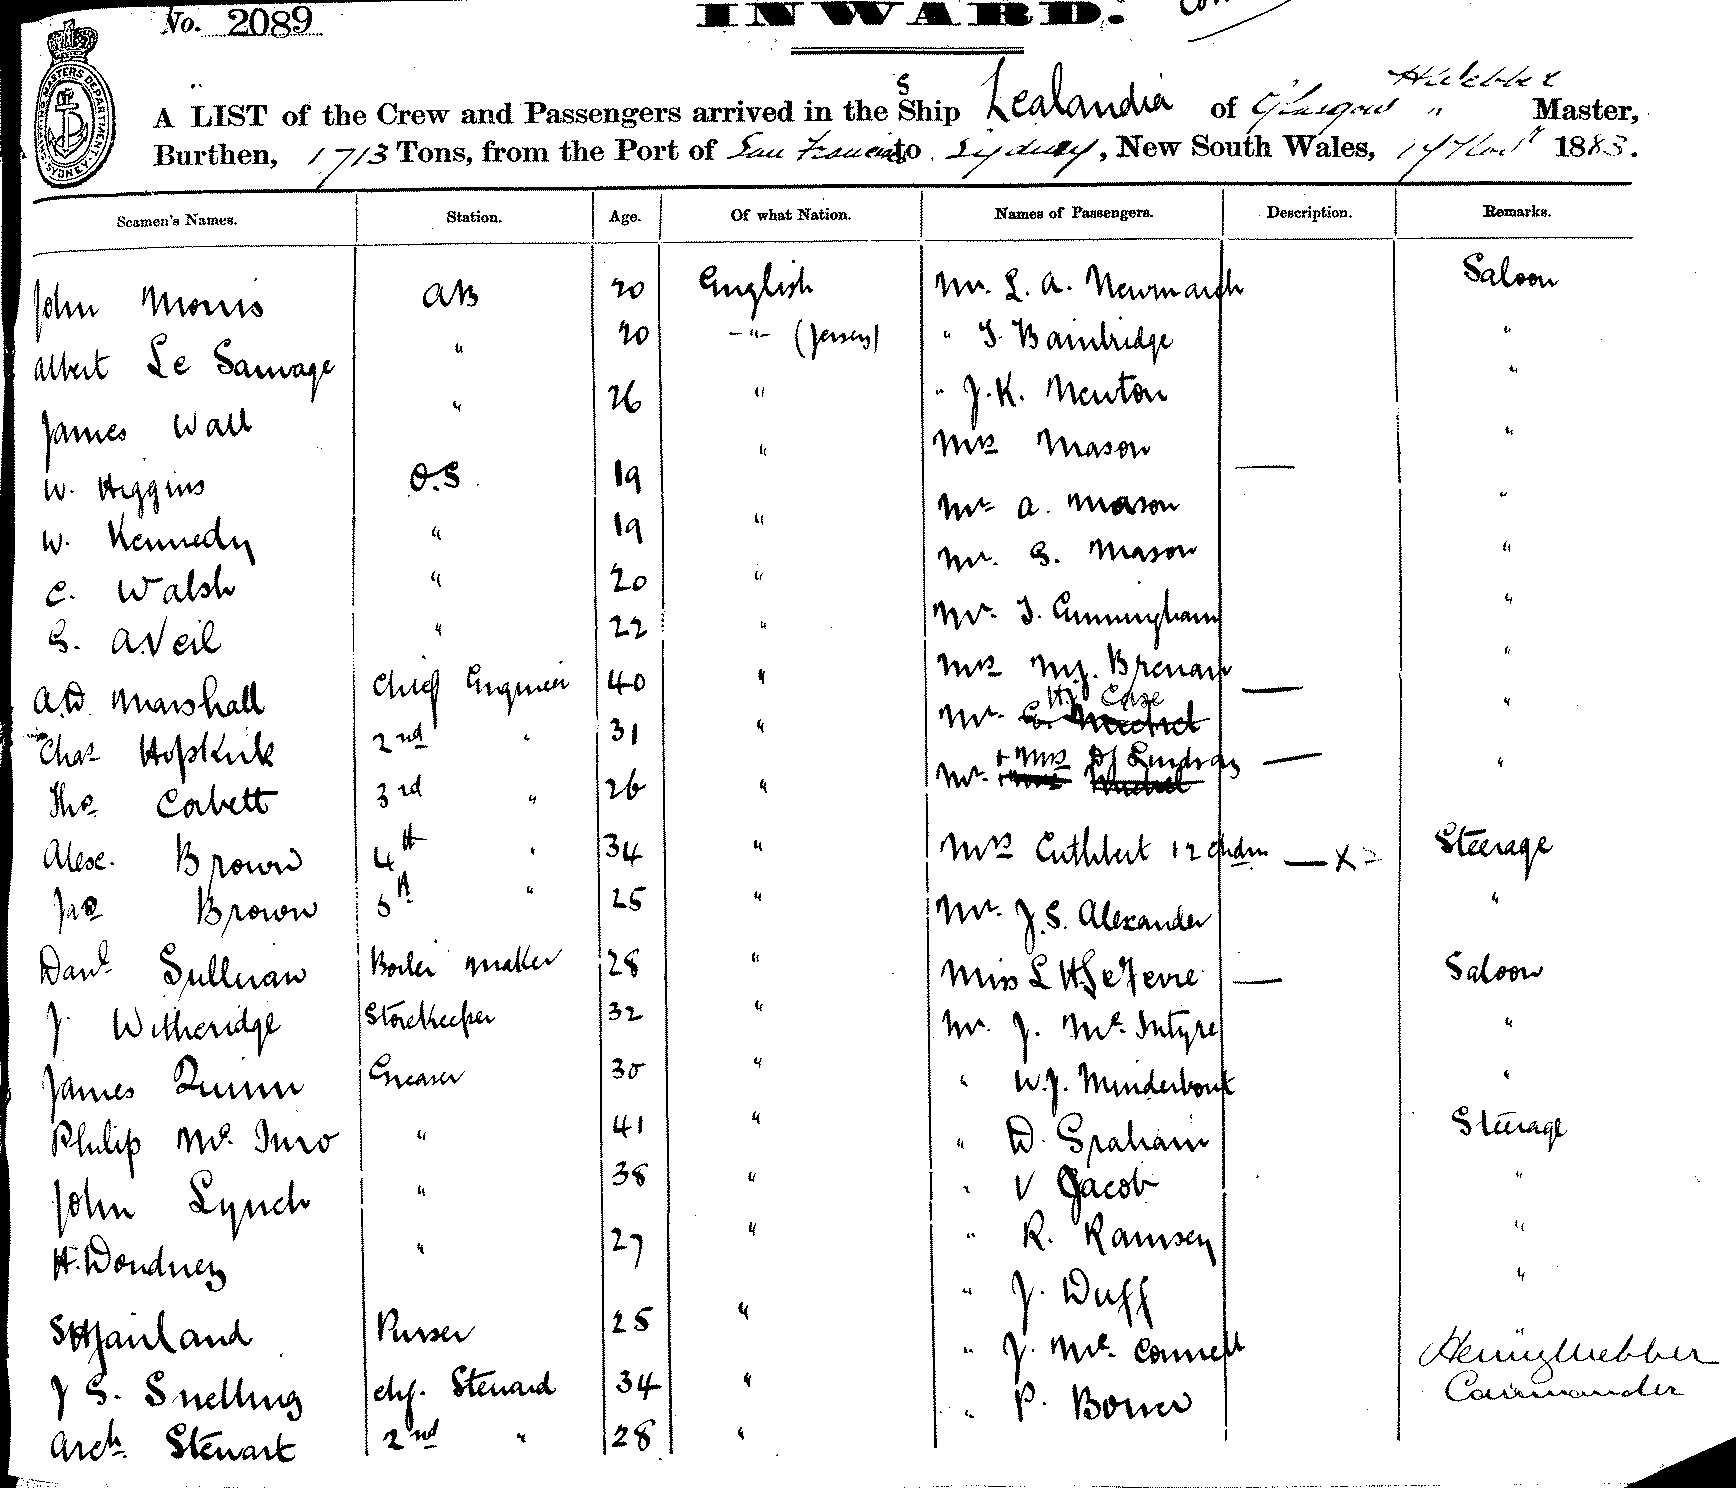 No. 2089
INWARD.
H Webber
A LIST of the Crew and Passengers arrived in the S Ship Zealandia of Glasgow " Master,
Burthen, 1713 Tons, from the Port of San Francisco to Sydney, New South Wales, 1883.
Seamen's Names. Station. Age. Of what Nation. Names of Passengers. Description. Remarks.
John Morris AB 20 English Mr. L. A. Newmarch Saloon
Albert Le Sauvage " 20 -"- (Jersey) " T. Bainbridge "
James Wall " 26 " " J. K. Newton "
W. Higgins O.S 19 " Mrs Mason — "
W. Kennedy " 19 " Mr A. Mason "
C. Walsh " 20 " Mr. G. Mason "
G. " 22 " Mr. T. Cunningham "
A.D Marshall Chief Engineer 40 " Mrs Brenan — "
Chas Hopkirk 2nd " 31 " Mr. Hy Case "
Thos Corbett 3rd " 26 " Mr. + Mrs Lindsay — "
Alex. Brown 4th " 34 " Mrs Cuthbert 2 chdrn — x 2 Steerage
Jas Brown 5th " 25 " Mr. J. S. Alexander "
Danl Sullivan Boiler Maker 28 " Miss L H Le Fevre — Saloon
J Witheridge Storekeeper 32 " Mr. J. Mc Intyre "
James Quinn Greaser 30 " " W. J. "
Philip Mc " 41 " " D. Graham Steerage
John Lynch " 38 " " V Jacob "
H. " 27 " " R. Ramsey "
Purser 25 " " J. Duff "
J G. Snelling chf. Steward 34 " " J. Mc Connell Henry Webber
Arch. Stewart 2nd " 28 " " P. Commander